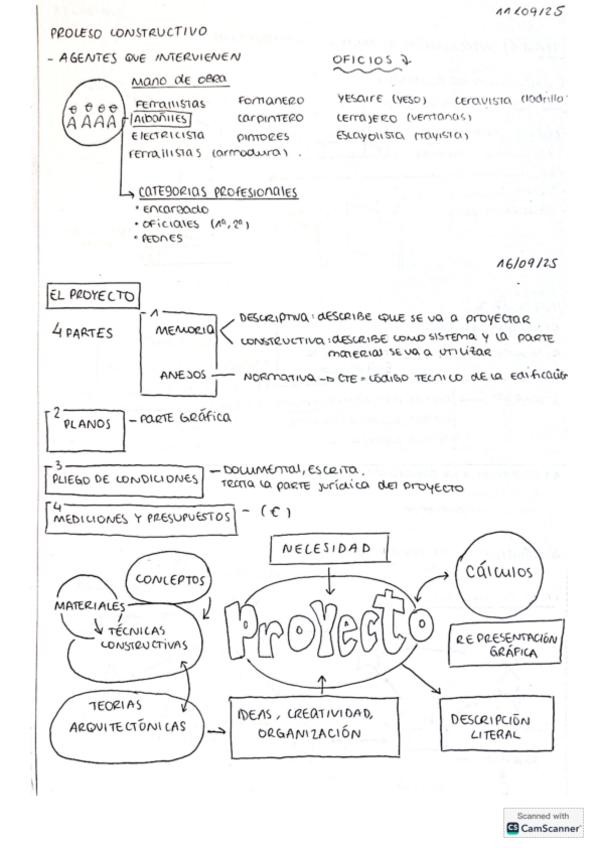 11/09/25
PROCESO CONSTRUCTIVO
- AGENTES QUE INTERVIENEN
OFICIOS
MANO DE OBRA
FERRALLISTAS FONTANERO YESAIRE (YESO) CERAVISTA (ladrillo
Albañiles CARPINTERO CERRAJERO (VENTANAS)
ELECTRICISTA PINTORES ESCAYOLISTA (TAYISTA)
FERRALLISTAS (armadura).
CATEGORIAS PROFESIONALES
• ENCARGADO
• OFICIALES (1º, 2º)
• PEONES
16/09/25
EL PROYECTO
4 PARTES
1
MEMORIA
DESCRIPTIVA: DESCRIBE QUE SE VA A PROYECTAR
CONSTRUCTIVA: DESCRIBE COMO SISTEMA Y LA PARTE
MATERIAL SE VA A UTILIZAR
ANEJOS — NORMATIVA → CTE = CÓDIGO TECNICO DE LA EDIFICACIÓN
2
PLANOS - PARTE GRÁFICA
3
PLIEGO DE CONDICIONES - DOCUMENTAL, ESCRITA.
LA PARTE JURÍDICA DEL PROYECTO
4
MEDICIONES Y PRESUPUESTOS - (€)
NECESIDAD
CONCEPTOS
CÁLCULOS
MATERIALES
TÉCNICAS
CONSTRUCTIVAS
PROYECTO
REPRESENTACIÓN
GRÁFICA
TEORIAS
ARQUITECTÓNICAS
IDEAS, CREATIVIDAD,
ORGANIZACIÓN
DESCRIPCIÓN
LITERAL
Scanned with
CS CamScanner